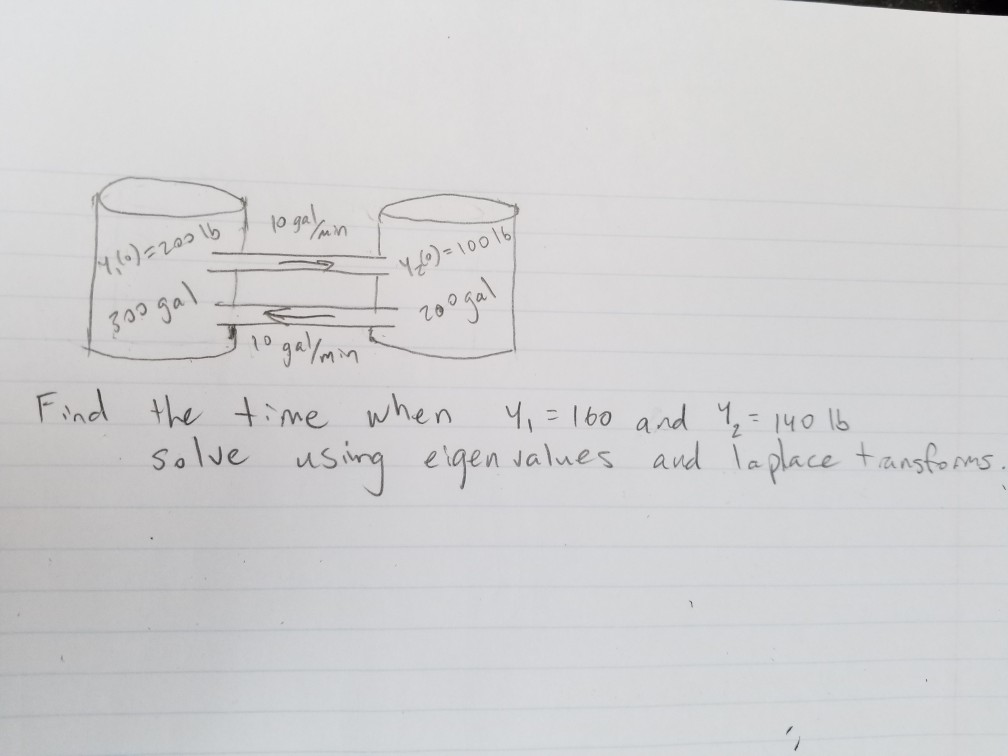 10 gal/min
y₁(0)=200 lb
y₂(0)=100 lb
300 gal
200 gal
10 gal/min
Find the time when y₁ = 160 and y₂ = 140 lb
solve using eigen values and laplace transforms.